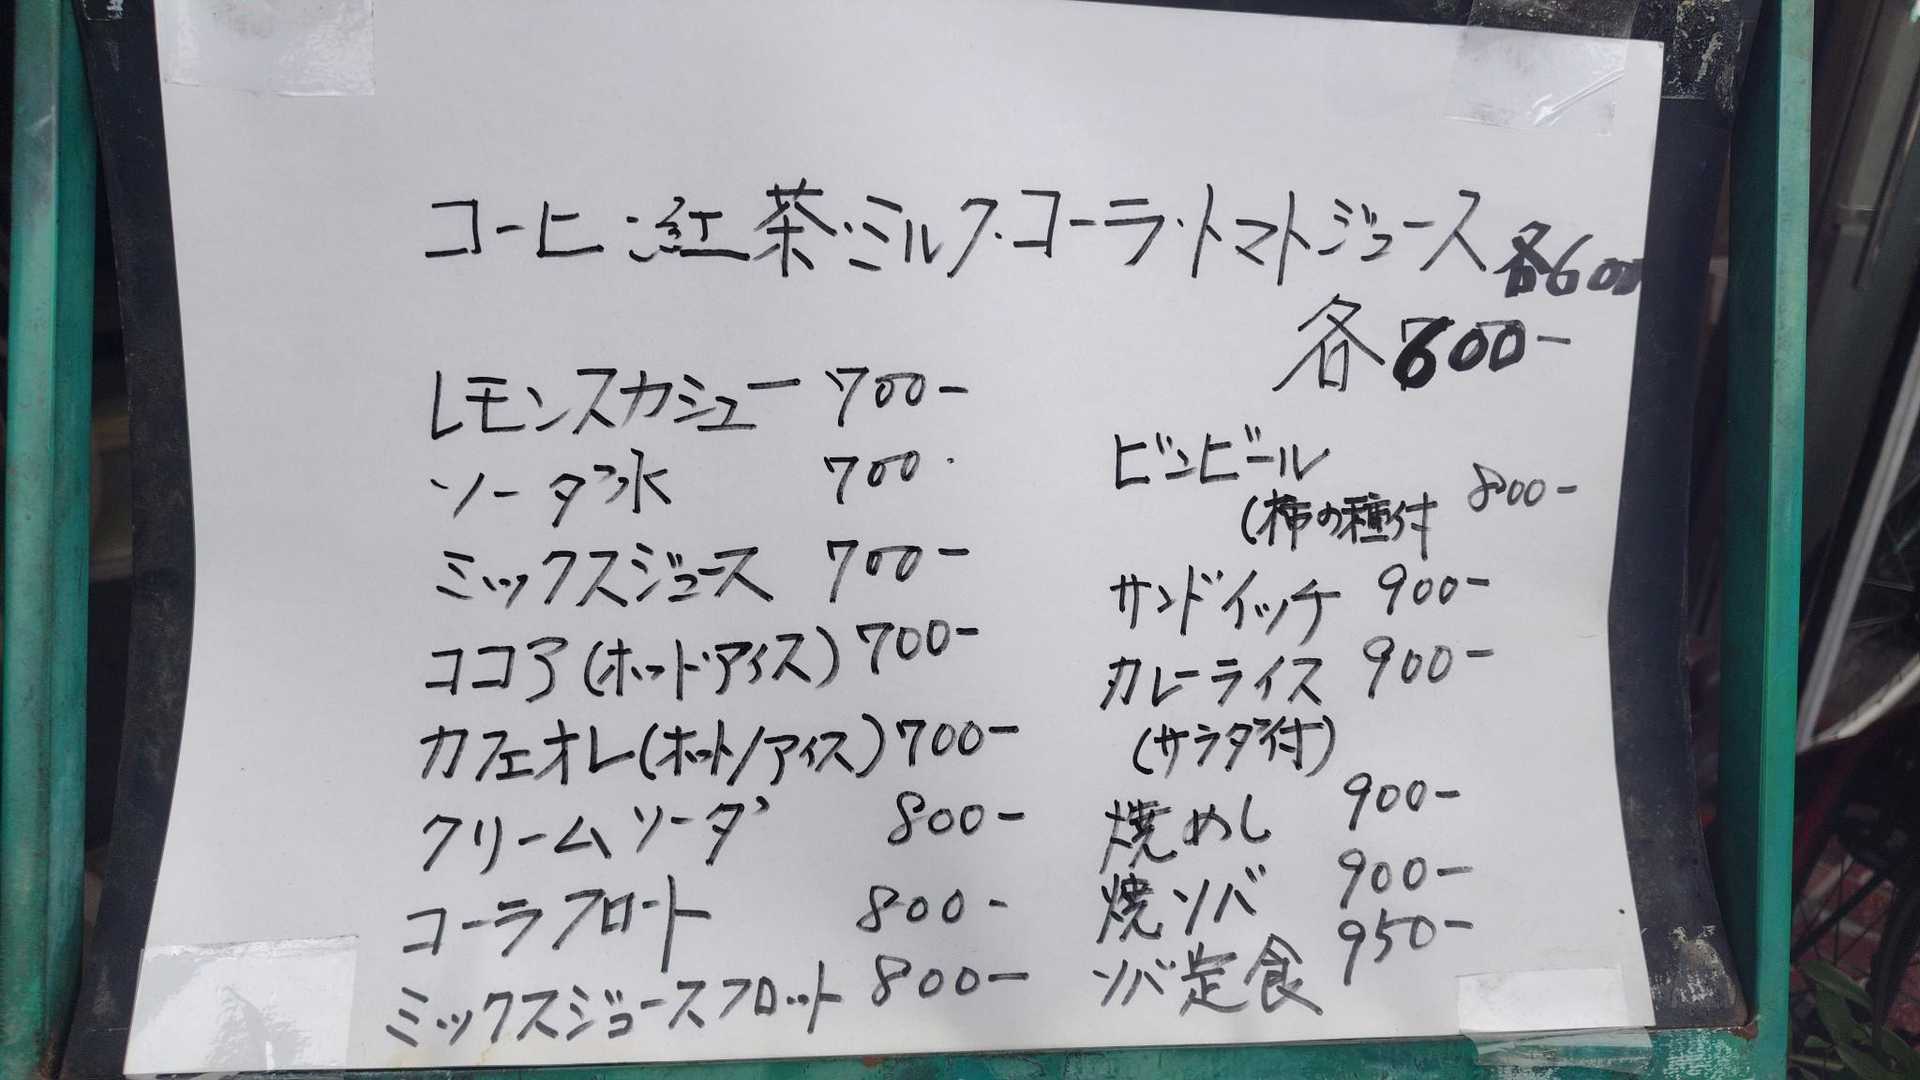 コーヒ・紅茶・ミルク・コーラ・トマトジュース各600
各600-
レモンスカシュー 700-
ソーダ水 700-
ミックスジュース 700-
ココア(ホット・アイス) 700-
カフェオレ(ホット/アイス) 700-
クリームソーダ 800-
コーラフロート 800-
ミックスジュースフロット 800-
ビンビール 800-
(柿の種付
サンドイッチ 900-
カレーライス 900-
(サラダ付)
焼めし 900-
焼ソバ 900-
ソバ定食 950-